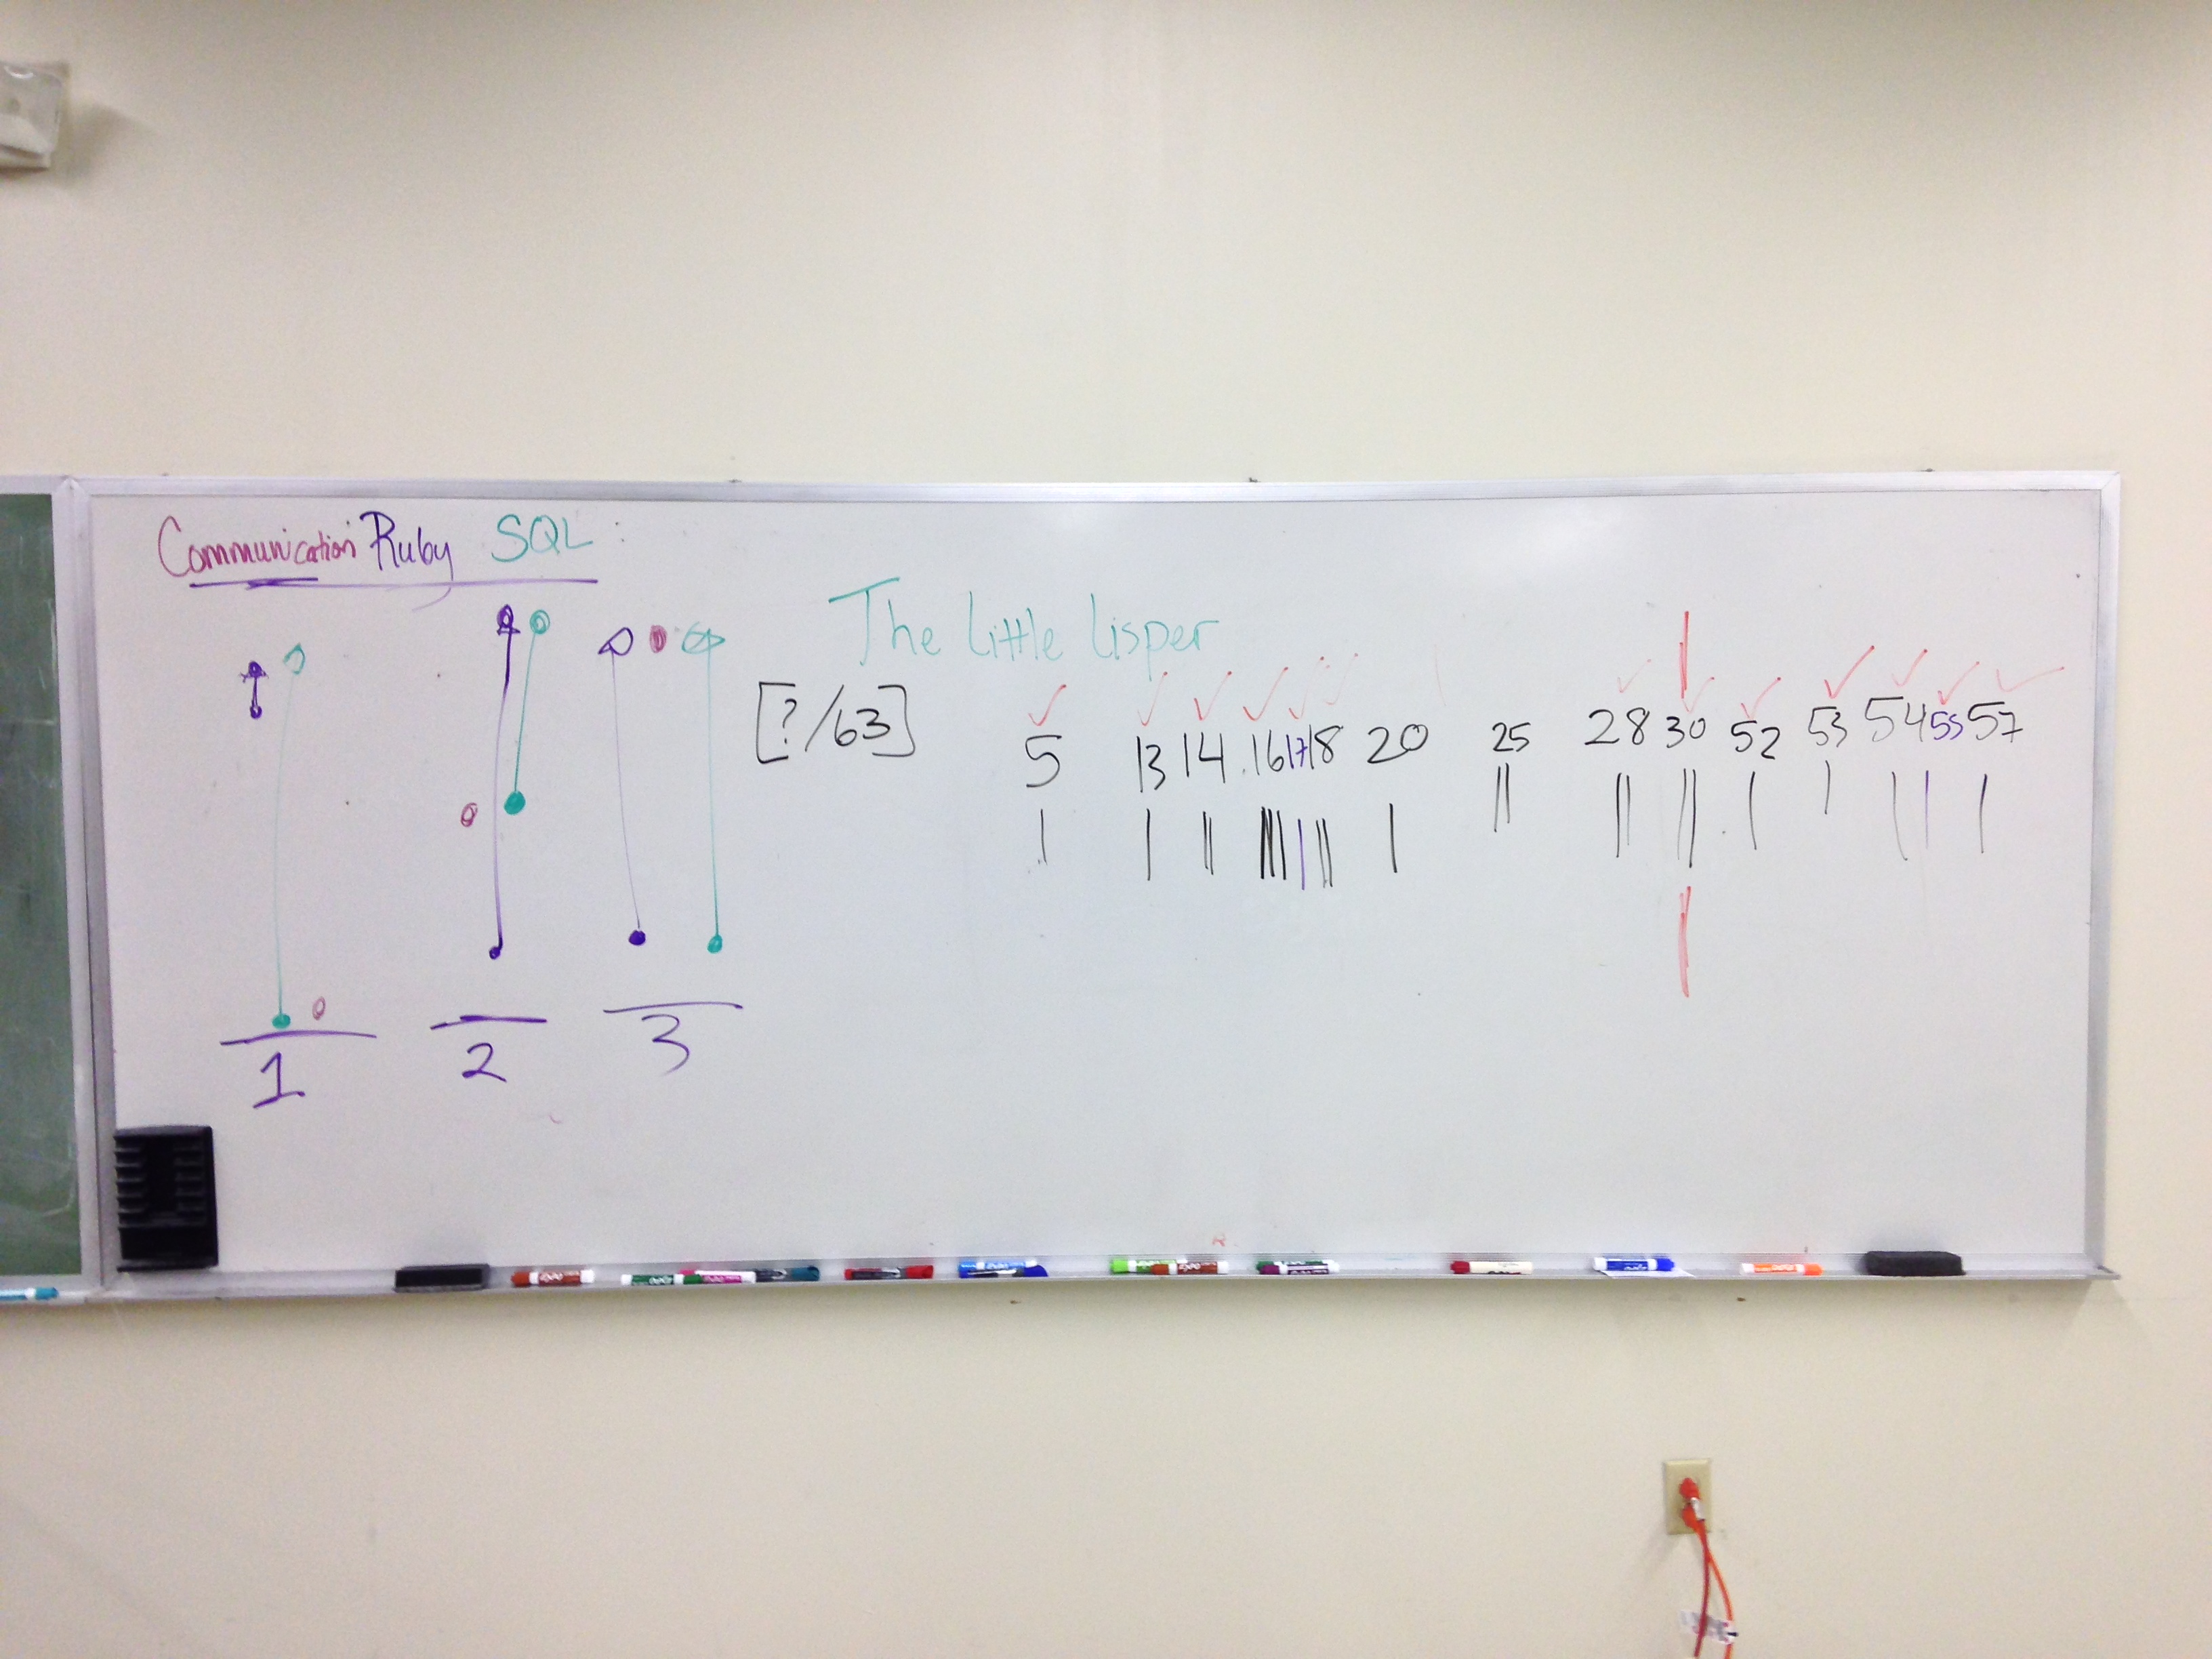 Communication Ruby SQL:
The Little Lisper
[?/63]
5 13 14 16 17 18 20 25 28 30 52 53 54 55 57
1 2 3